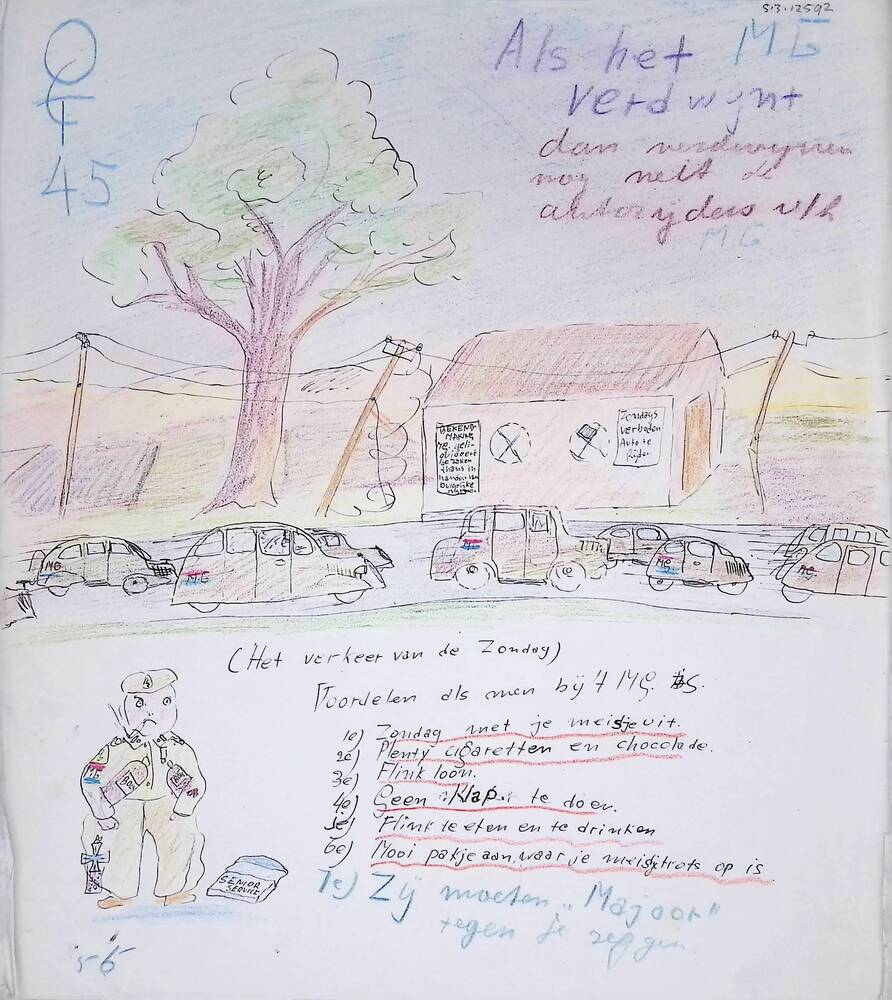 S.3.12592
OCT
45
Als het MG
verdwynt
dan verdwynen
nog neit de
autoryders v/h
MG
BEKEND-
MAKING
MG. geli-
quideert
Be zaken
thans in
handen van
Burgelijke
Zondags
verboden
Auto te
Rijden
MG
MG
MG
MG.
MG.
(Het verkeer van de Zondag)
Voordelen als men bij 't MG. is.
1e) Zondag met je meisje uit.
2e) Plenty cigaretten en chocolade.
3e) Flink loon.
4e) Geen klap te doen.
5e) Flink te eten en te drinken
6e) Mooi pakje aan, waar je meisje trots op is
7e) Zij moeten „Majoor"
tegen je zeggen
MG
SENIOR
SERVICE
56